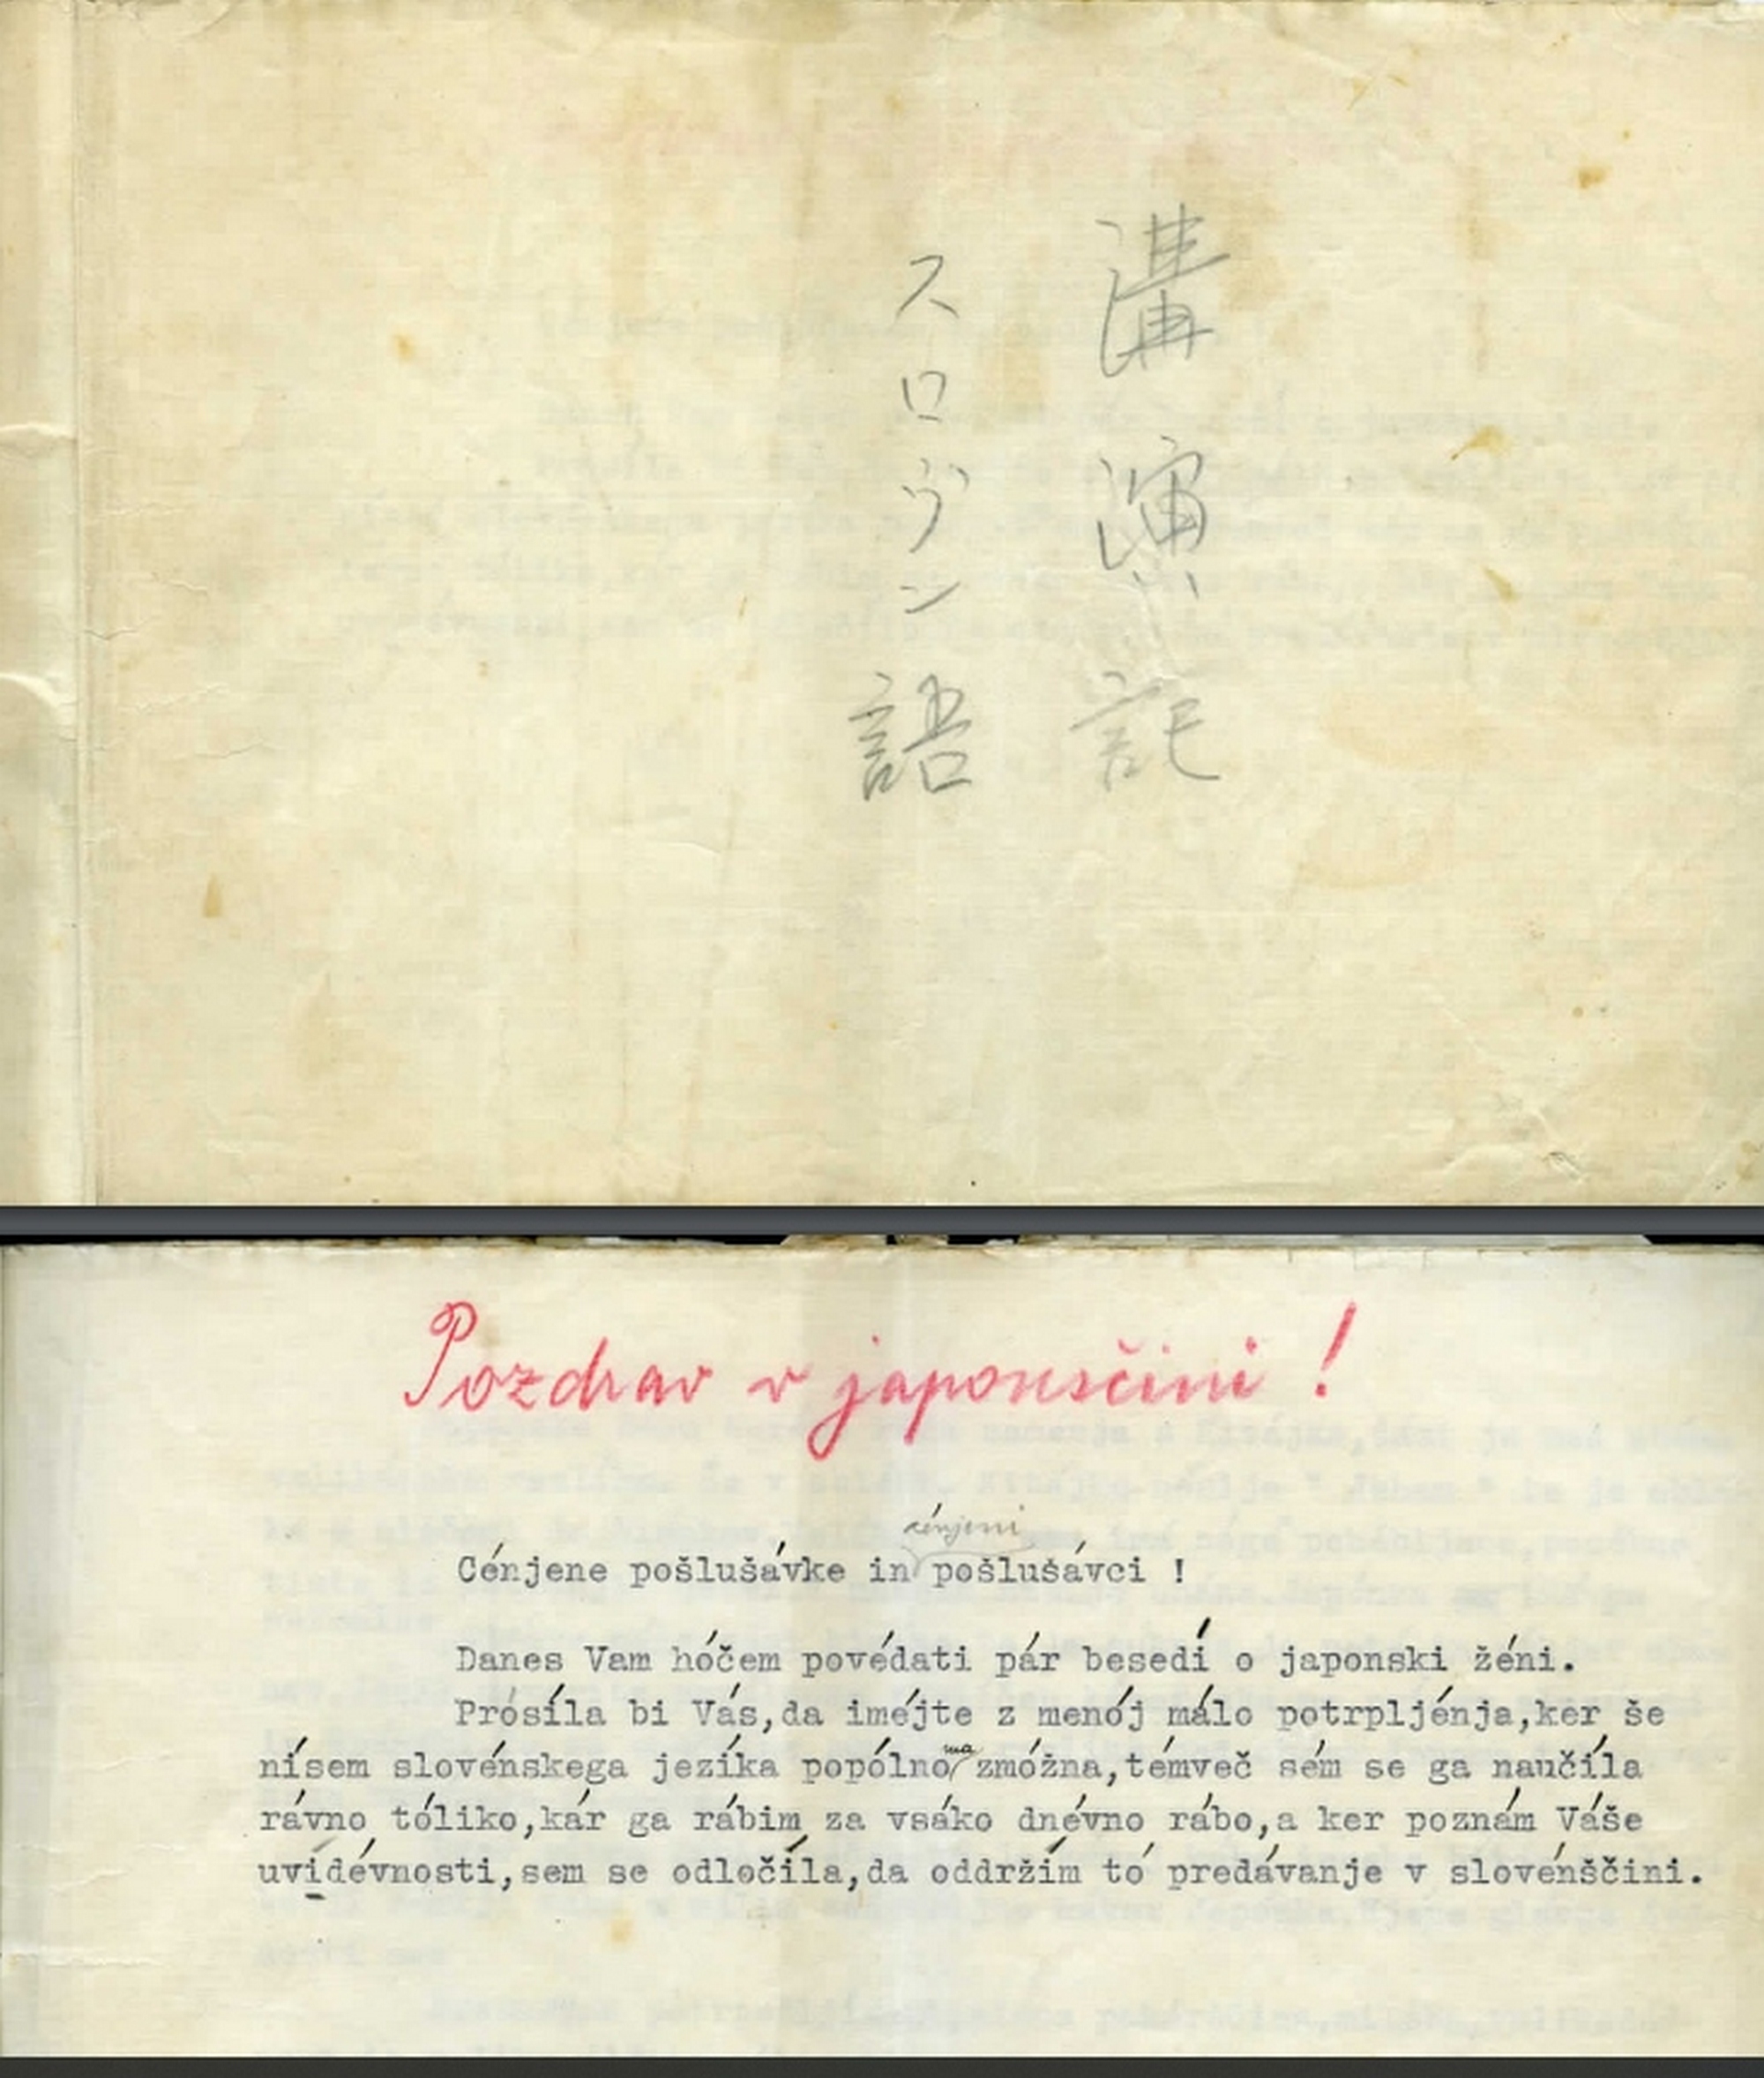 溝演記
スロヴン語
Pozdrav v japonsčini !
cénjeni
Cénjene pošlušávke in pošlušávci !
Danes Vam hóčem povédati pár besedí o japonski žéni.
Prosíla bi Vás,da iméjte z menój málo potrpljénja,ker še
nísem slovénskega jezíka popólnoma zmóžna,témveč sém se ga naučíla
rávno tóliko,kár ga rábim za vsáko dnévno rábo,a ker poznám Váše
uvídévnosti,sem se odločíla,da oddržím tó predávanje v slovénščini.